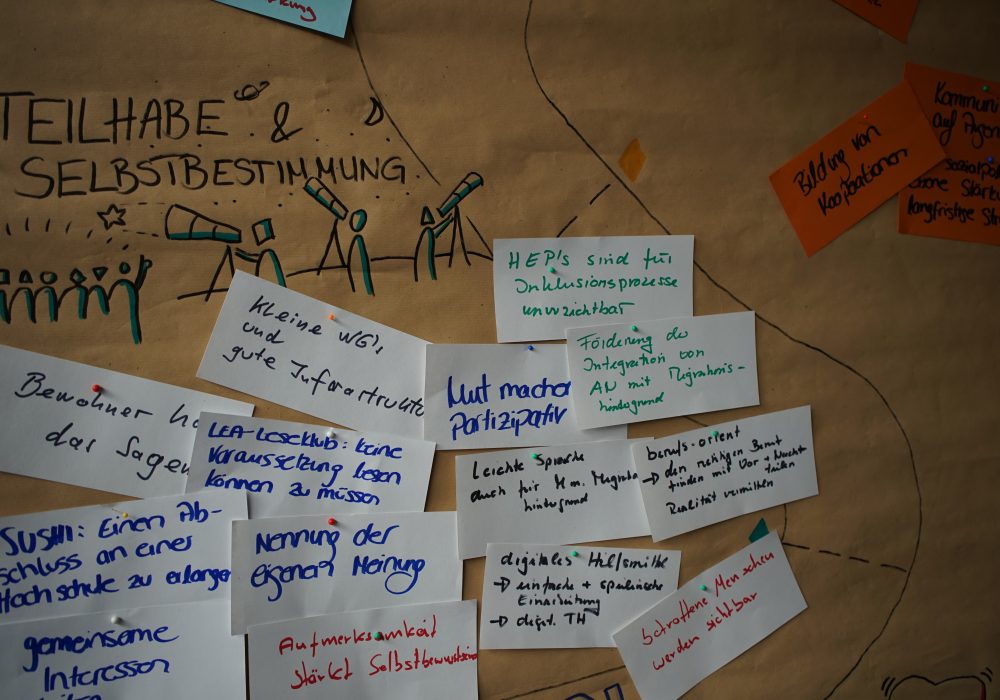 TEILHABE &
SELBSTBESTIMMUNG
Bildung von
Kooperationen
langfristige
HEP's sind für
Inklusionsprozesse
unverzichtbar
Förderung der
Integration von
AN mit Migrations-
hintergrund
Kleine WG's
und
gute
Mut
Partizipativ
Bewohner
das Sagen
LEA-Leseklub: keine
Voraussetzung lesen
können zu müssen
Leichte Sprache
auch für M m.
hintergrund
berufs-orient
→ den richtigen Beruf
finden mit Vor + Nachteilen
Realität vermitteln
SUSHI: Einen Ab-
schluss an einer
Hochschule zu erlangen
Nennung der
eigenen Meinung
digitales Hilfsmittel
→ einfache + spezifische
Einarbeitung
→ digit. TH
betroffene Menschen
werden sichtbar
gemeinsame
Interessen
Aufmerksamkeit
stärkt Selbstbewusstsein